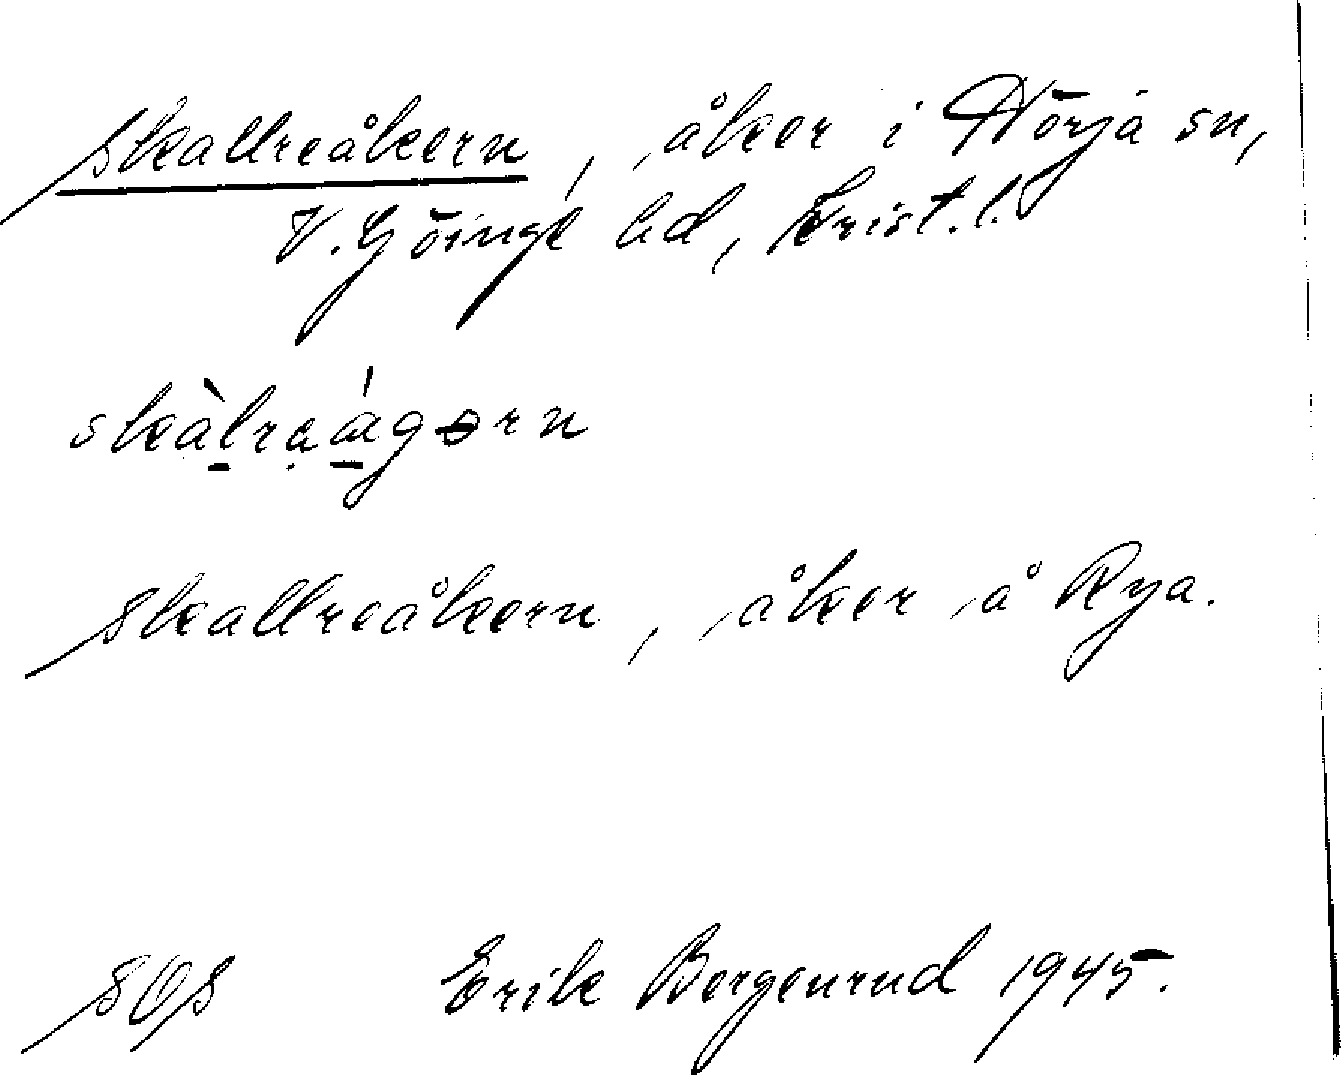 Skallreåkern, åker i Hörja sn,
V. Göinge hd, Krist. l.
skàlraágərn
Skallreåkern, åker å Rya.
SOS Erik Bergenrud 1945.